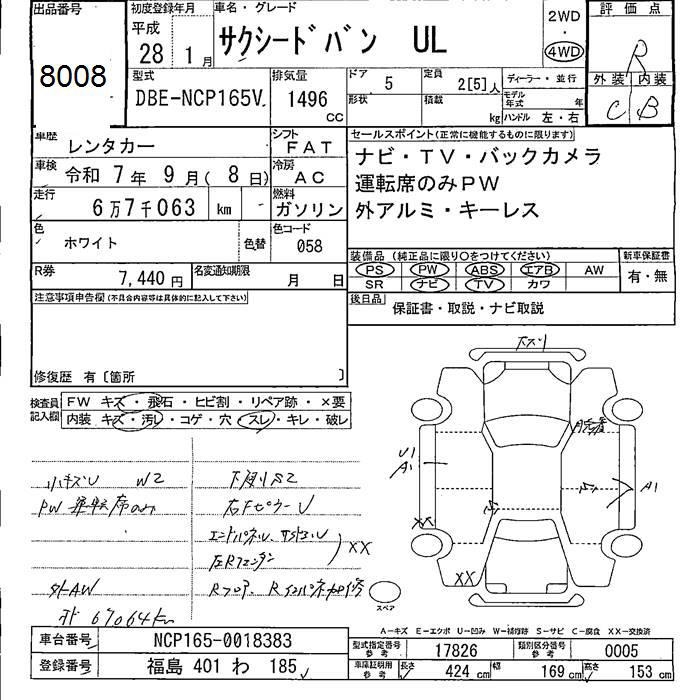 出品番号
8008
初度登録年月
平成
28 1月
車名・グレード
サクシードバン UL
2WD
・
4WD
評価点
R
外装 内装
C B
型式
DBE-NCP165V
排気量
1496
cc
ドア
5
形状
定員
2[5]人
積載
kg
ディーラー・並行
モデル年式 年
ハンドル 左・右
車歴
レンタカー
シフト
FAT
車検
令和 7年 9月( 8日)
冷房
AC
走行
6万7千063 km
燃料
ガソリン
色
ホワイト
色替
色コード
058
セールスポイント(正常に機能するものに限ります)
ナビ・TV・バックカメラ
運転席のみPW
外アルミ・キーレス
装備品(純正品に限り○をつけてください)
PS PW ABS エアB AW
SR ナビ TV カワ
新車保証書
有・無
R券
7,440円
名変通知期限
月 日
後日品
保証書・取説・ナビ取説
注意事項申告欄(不具合内容等は具体的に記入して下さい)
修復歴 有〔箇所 〕
検査員記入欄
FW キズ・飛石・ヒビ割・リペア跡・×要
内装 キズ・汚レ・コゲ・穴・スレ・キレ・破レ
小キズU W2
PW 運転席のみ
外AW
67064km
下廻りS2
右FピラーU
XX
下スリ
U1
A1
A1
XX
XX
スペア
A－キズ E－エクボ U－凹み W－補修跡 S－サビ C－腐食 XX－交換済
車台番号
NCP165-0018383
登録番号
福島 401 わ 185
型式指定番号
参考
17826
類別区分番号
参考
0005
車庫証明用
参考
長さ
424 cm
幅
169 cm
高さ
153 cm